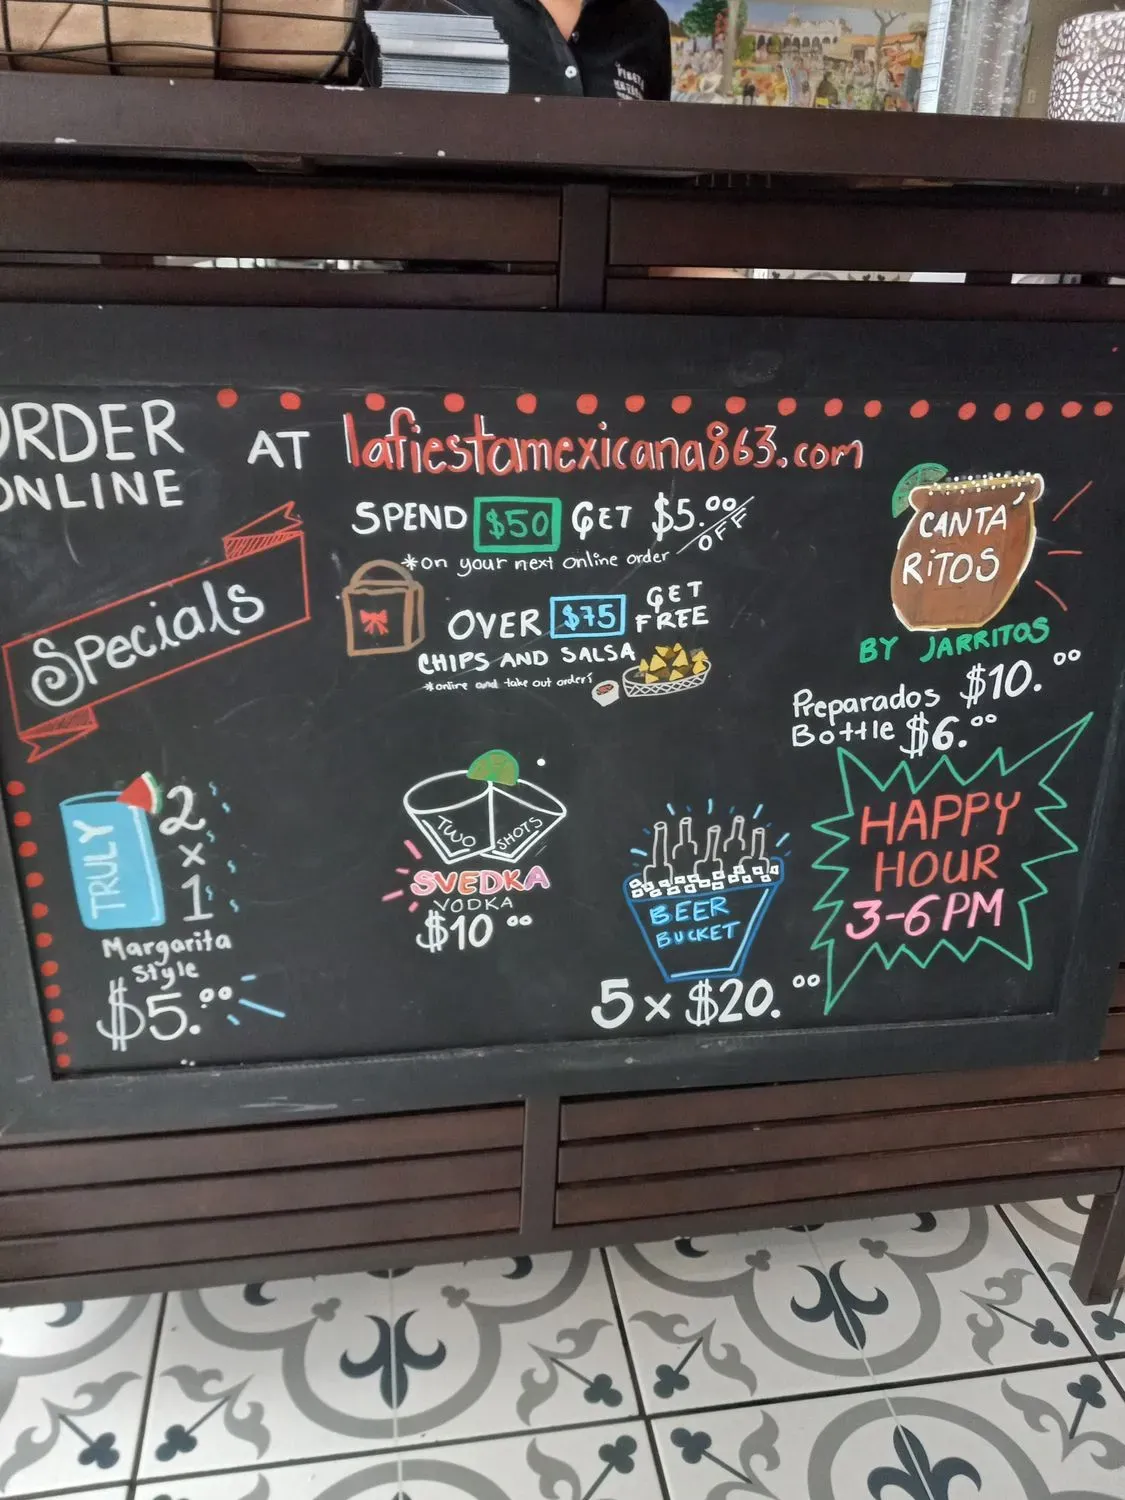 ORDER
ONLINE
AT lafiestamexicana863.com
SPEND $50 GET $5.00 OFF
*on your next online order
OVER $75 GET FREE
CHIPS AND SALSA
*online and take out orders
Specials
CANTA
RiTOS
BY JARRITOS
Preparados $10.00
Bottle $6.00
TRULY
2 x 1
Margarita
Style
$5.00
TWO SHOTS
SVEDKA
VODKA
$10 00
BEER
BUCKET
5 x $20.00
HAPPY
HOUR
3-6PM